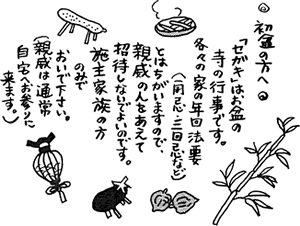 ◎初盆の方へ◎
「せがき」はお盆の
寺の行事です。
各々の家の年回法要
(一周忌・三回忌など)
とはちがいますので、
親戚の人をあえて
招待しないでよいのです。
施主家族の方
のみで
おいで下さい。
(親戚は通常
自宅へお参りに
来ます。)